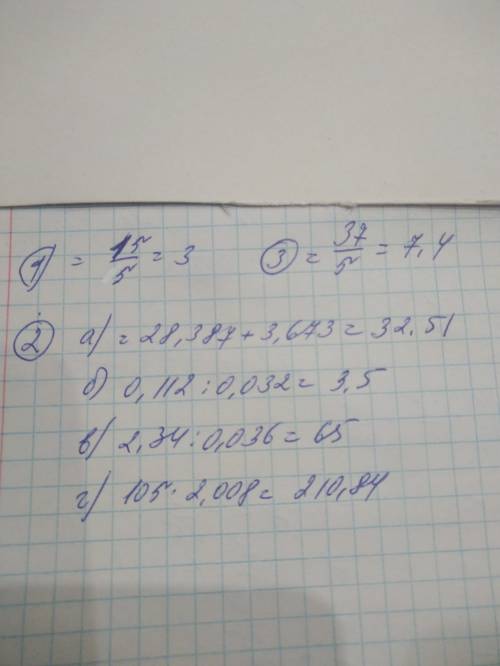 1) = 15/5 = 3 3 = 37/5 = 7,4
2 а) = 28,387 + 3,673 = 32.51
б) 0,112 : 0,032 = 3,5
в) 2,34 : 0,036 = 65
г) 105 · 2,008 = 210,84